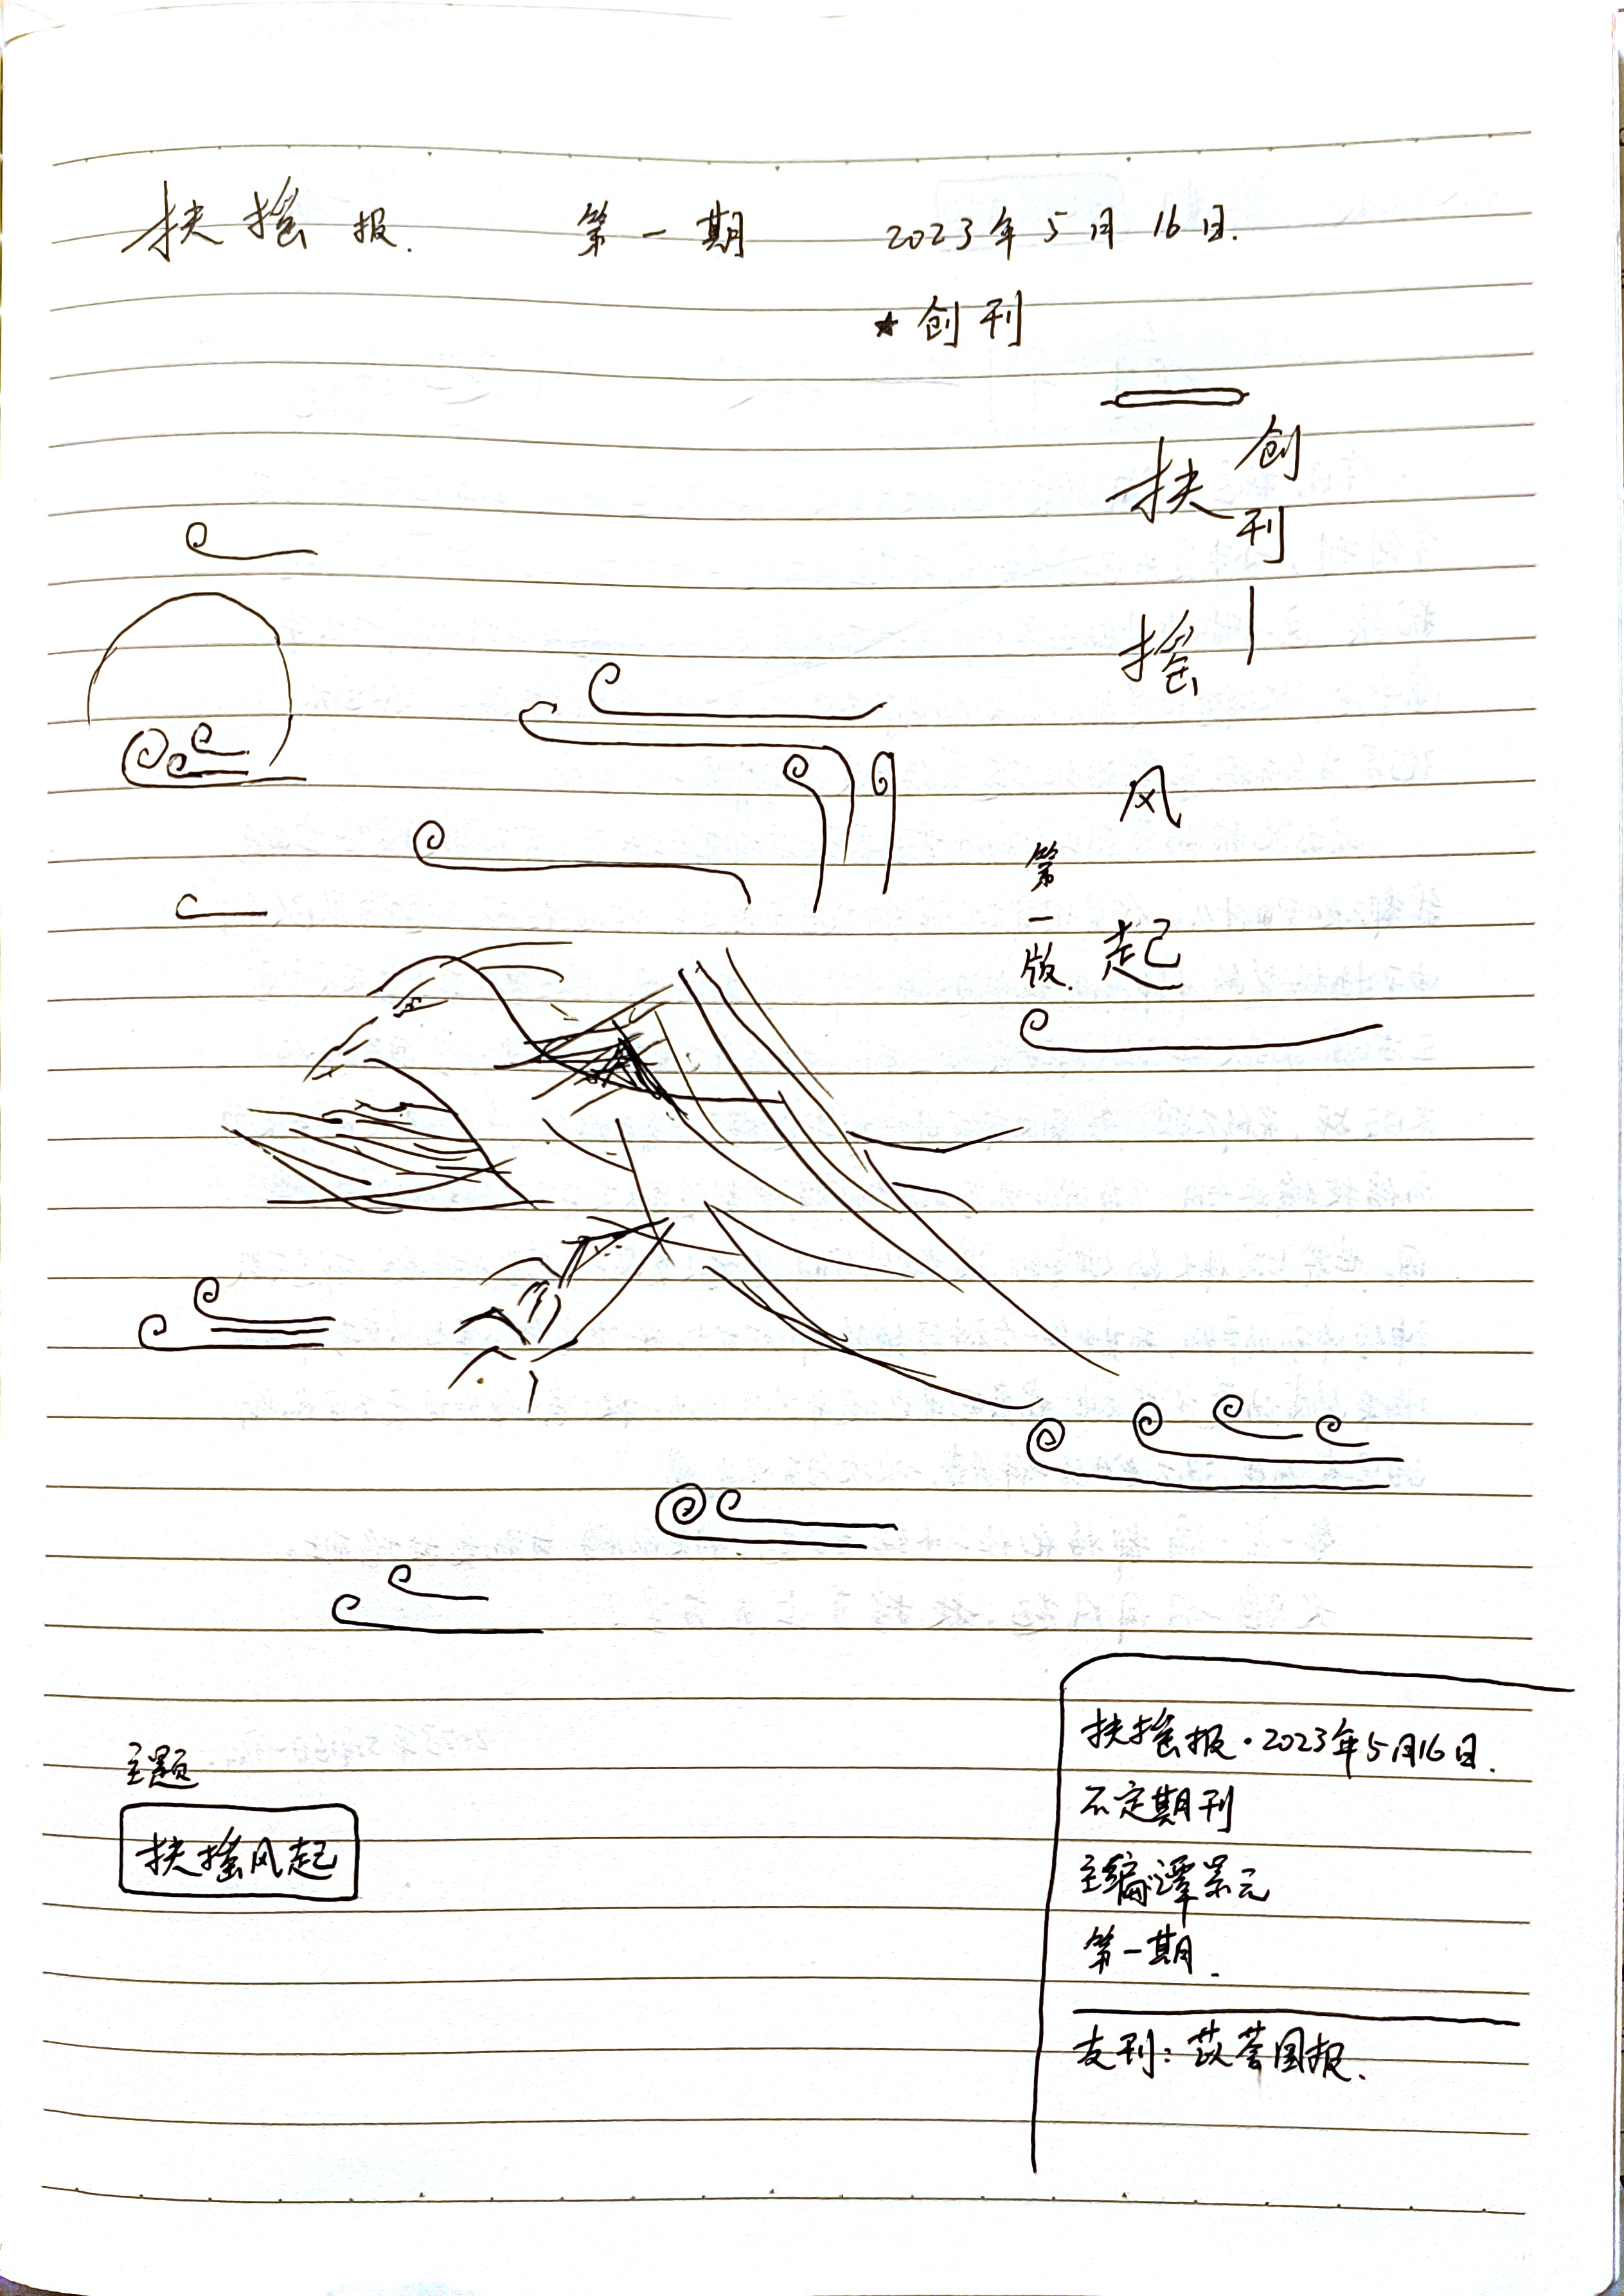 扶摇报. 第一期 2023年5月16日.
★创刊
创刊
扶摇风起
第一版.
主题
扶摇风起
扶摇报·2023年5月16日.
不定期刊
主编:谭景元
第一期.
友刊:苡荟周报.